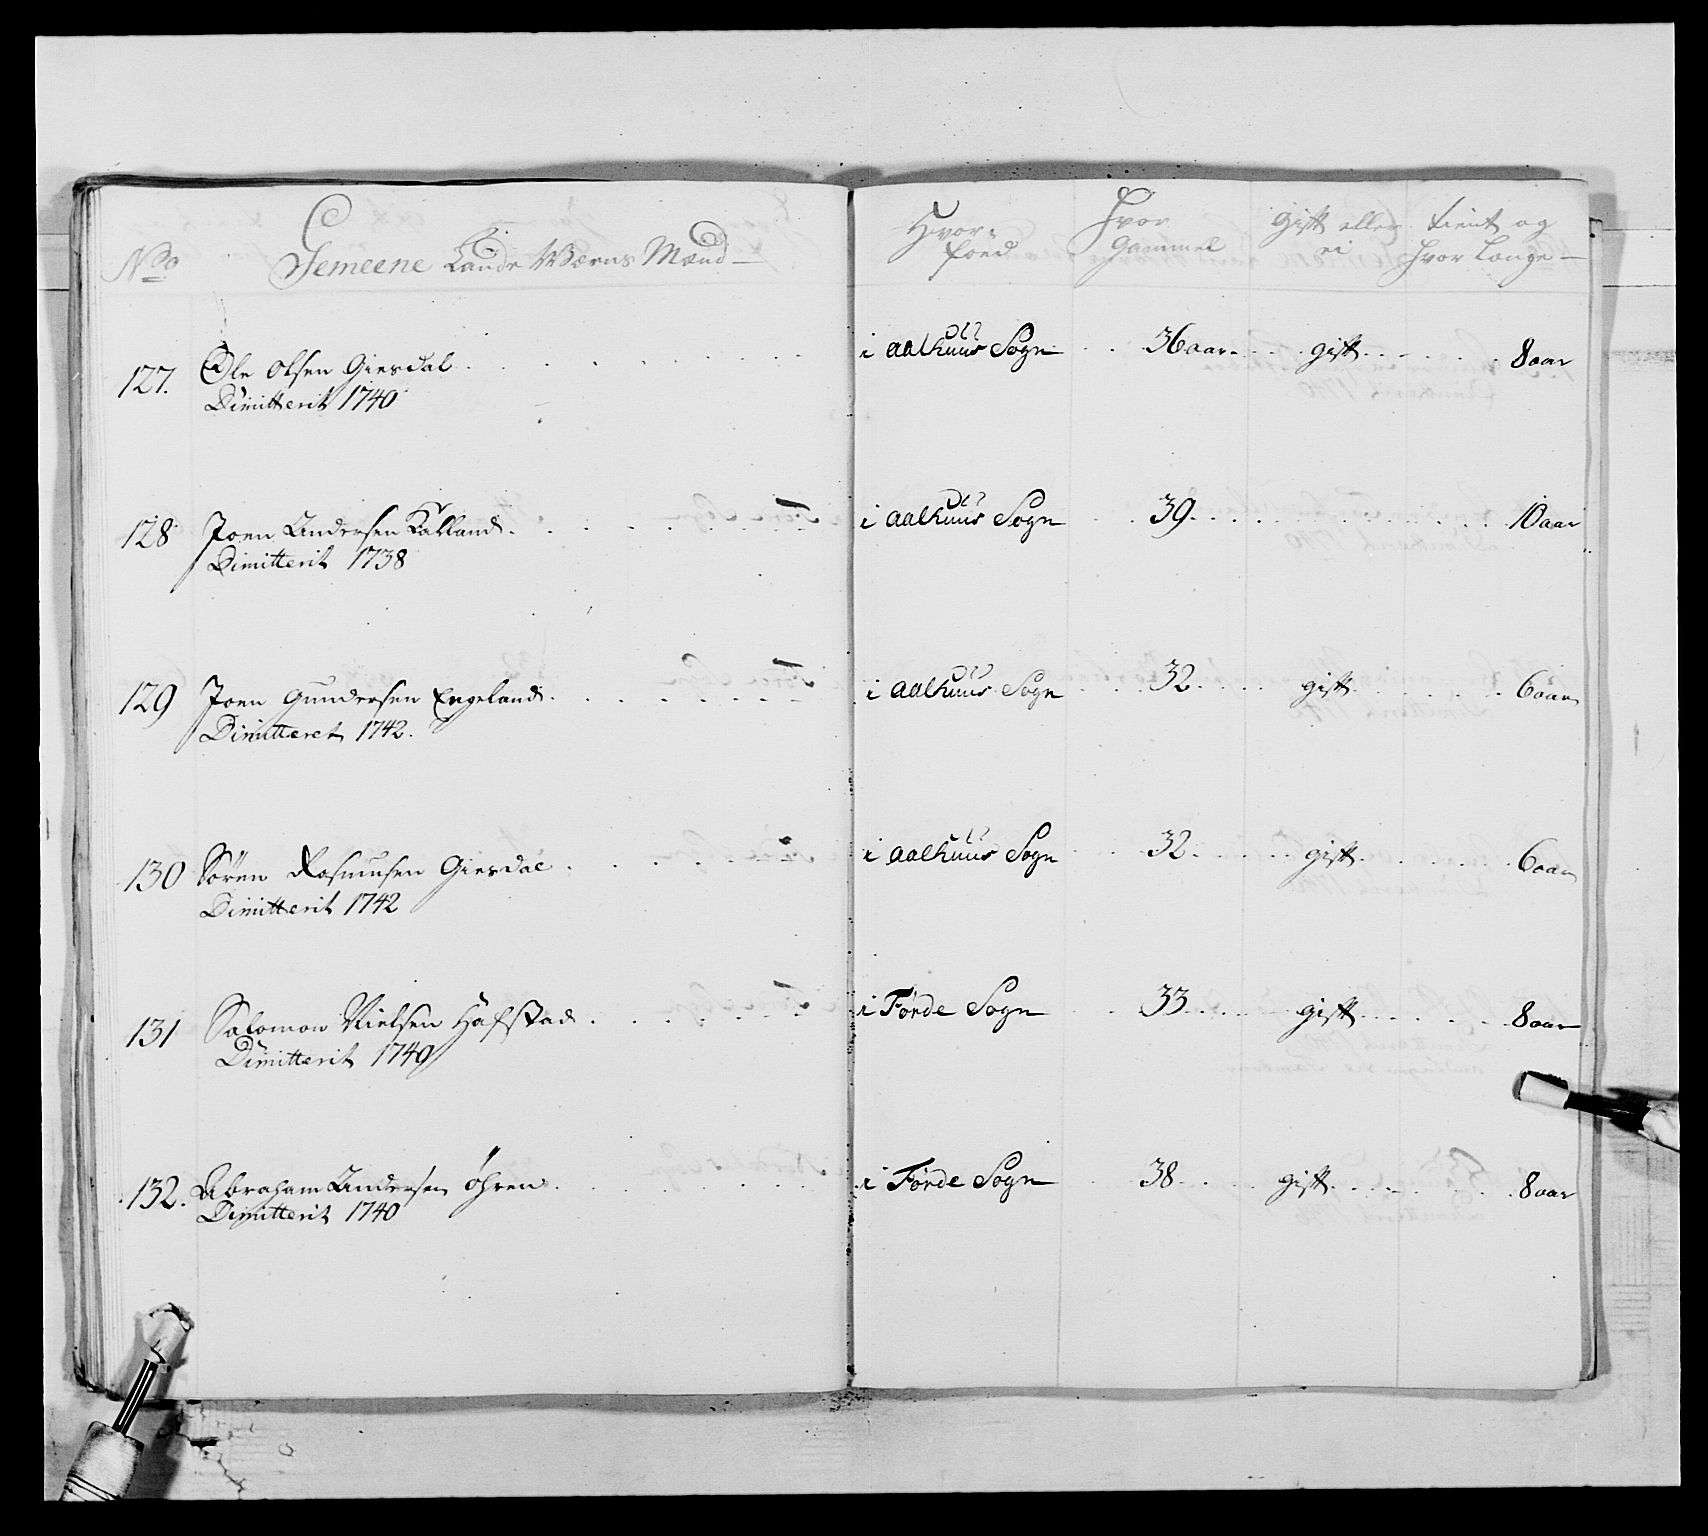 No Gemeene Lands Wærns Mænd Hvor- föed Hvor Gammel Gift eller ei tient og Hvor Længe
127. Ole Olsen Giesdal i Aalhuus Sogn 36 aar gift 8 aar
Dimitterit 1740
128 Joen Andersen Kalland i Aalhuus Sogn 39 10 aar
Dimitterit 1738
129 Joen Gundersen Engeland i Aalhuus Sogn 32 gift 6 aar
Dimitteret 1742.
130 Sören Rasmusen Giesdal i Aalhuus Sogn 32 gift 6 aar
Dimitterit 1742
131 Salomon Nielsen Hafstad i Førde Sogn 33 gift 8 aar
Dimitterit 1740
132. Abraham Andersen Öhren i Førde Sogn 38 gift 8 aar
Dimitterit 1740